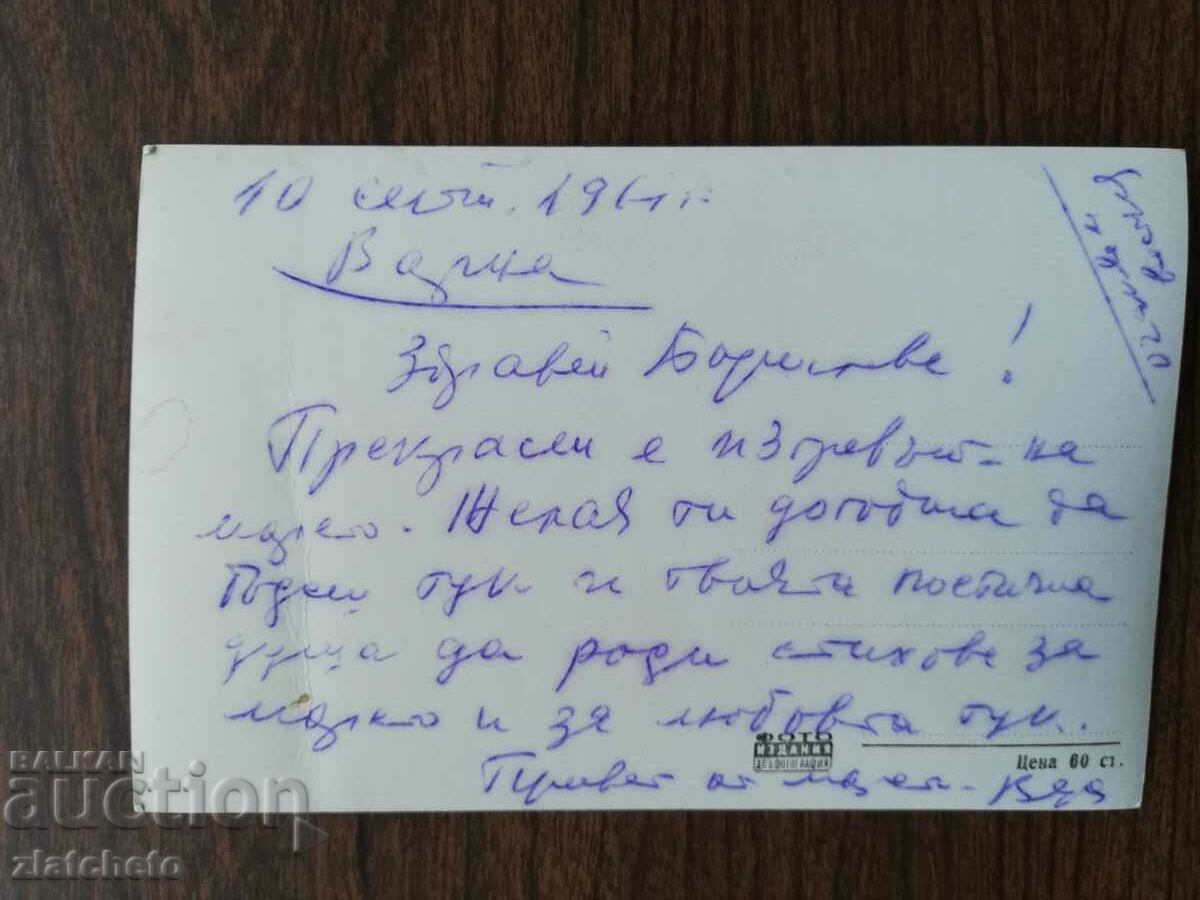 10 септ. 1961 г.
Варна
Здравей Бориславе!
Прекрасен е изгревът на
морето. Желая ти догодина да
бъдеш тук и твоята поетична
душа да роди стихове за
морето и за любовта тук.
Привет от
ФОТО
ИЗДАНИЯ
ДП БЪЛ. ФОТОГРАФИЯ
Цена 60 ст.
BALKAN
auction
zlatcheto